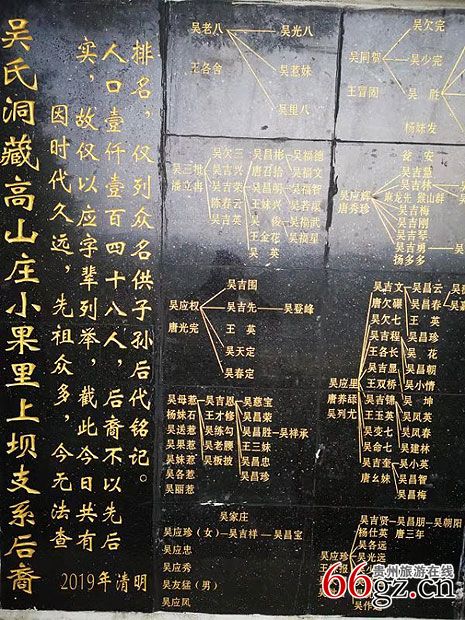 吴氏洞藏高山庄小果里上坝支系后裔
因时代久远，先祖众多，今无法查
实，故仅以应字辈列举，截此今日共有
人口壹仟壹百四十八人，后裔不以先后
排名，仅列众名供子孙后代铭记。
2019年清明
吴老八
王各舍
吴光八
吴惹妹
吴里八
吴同贺
王冒闵
吴欠完
吴少完
吴胜
杨妹发
吴三批
潘立冉
吴欠三
吴吉兴
吴吉荣
陈春云
吴吉英
吴昌彬
唐召拾
吴昌明
王妹兴
吴俊
王金花
吴英
吴福德
吴福文
吴福智
吴若巫
吴福武
吴福星
吴应辉
唐秀珍
吴吉林
吴吉梅
吴吉刚
吴吉琴
吴吉勇
杨多多
吴应权
唐光完
吴吉国
吴吉先
王英
吴天定
吴春定
吴登峰
吴应里
唐养舔
吴列尤
吴吉文
唐欠碾
吴欠七
吴吉程
王各长
吴吉显
王双桥
吴吉其
王玉英
吴变七
吴命七
吴吉奎
唐幺妹
吴昌云
吴昌春
王英
吴昌珍
吴花
吴昌朝
吴小情
吴坤
吴凤英
吴凤春
吴建林
吴小英
吴昌智
吴昌梅
吴母惹
杨妹石
吴送惹
吴果惹
吴妹惹
吴各惹
吴丽惹
吴吉恩
王才修
吴练勾
吴老腰
吴板披
吴慈宝
吴昌荣
吴昌胜
王三妹
吴昌忠
吴昌珍
吴祥承
吴家庄
吴应珍（女）
吴吉祥
吴昌宝
吴应忠
吴应秀
吴友猛（男）
吴应凤
吴应珍
吴吉贤
杨仕英
吴各远
吴光远
吴昌朋
唐三年
吴朝阳
贵州旅游在线
66gz.cn